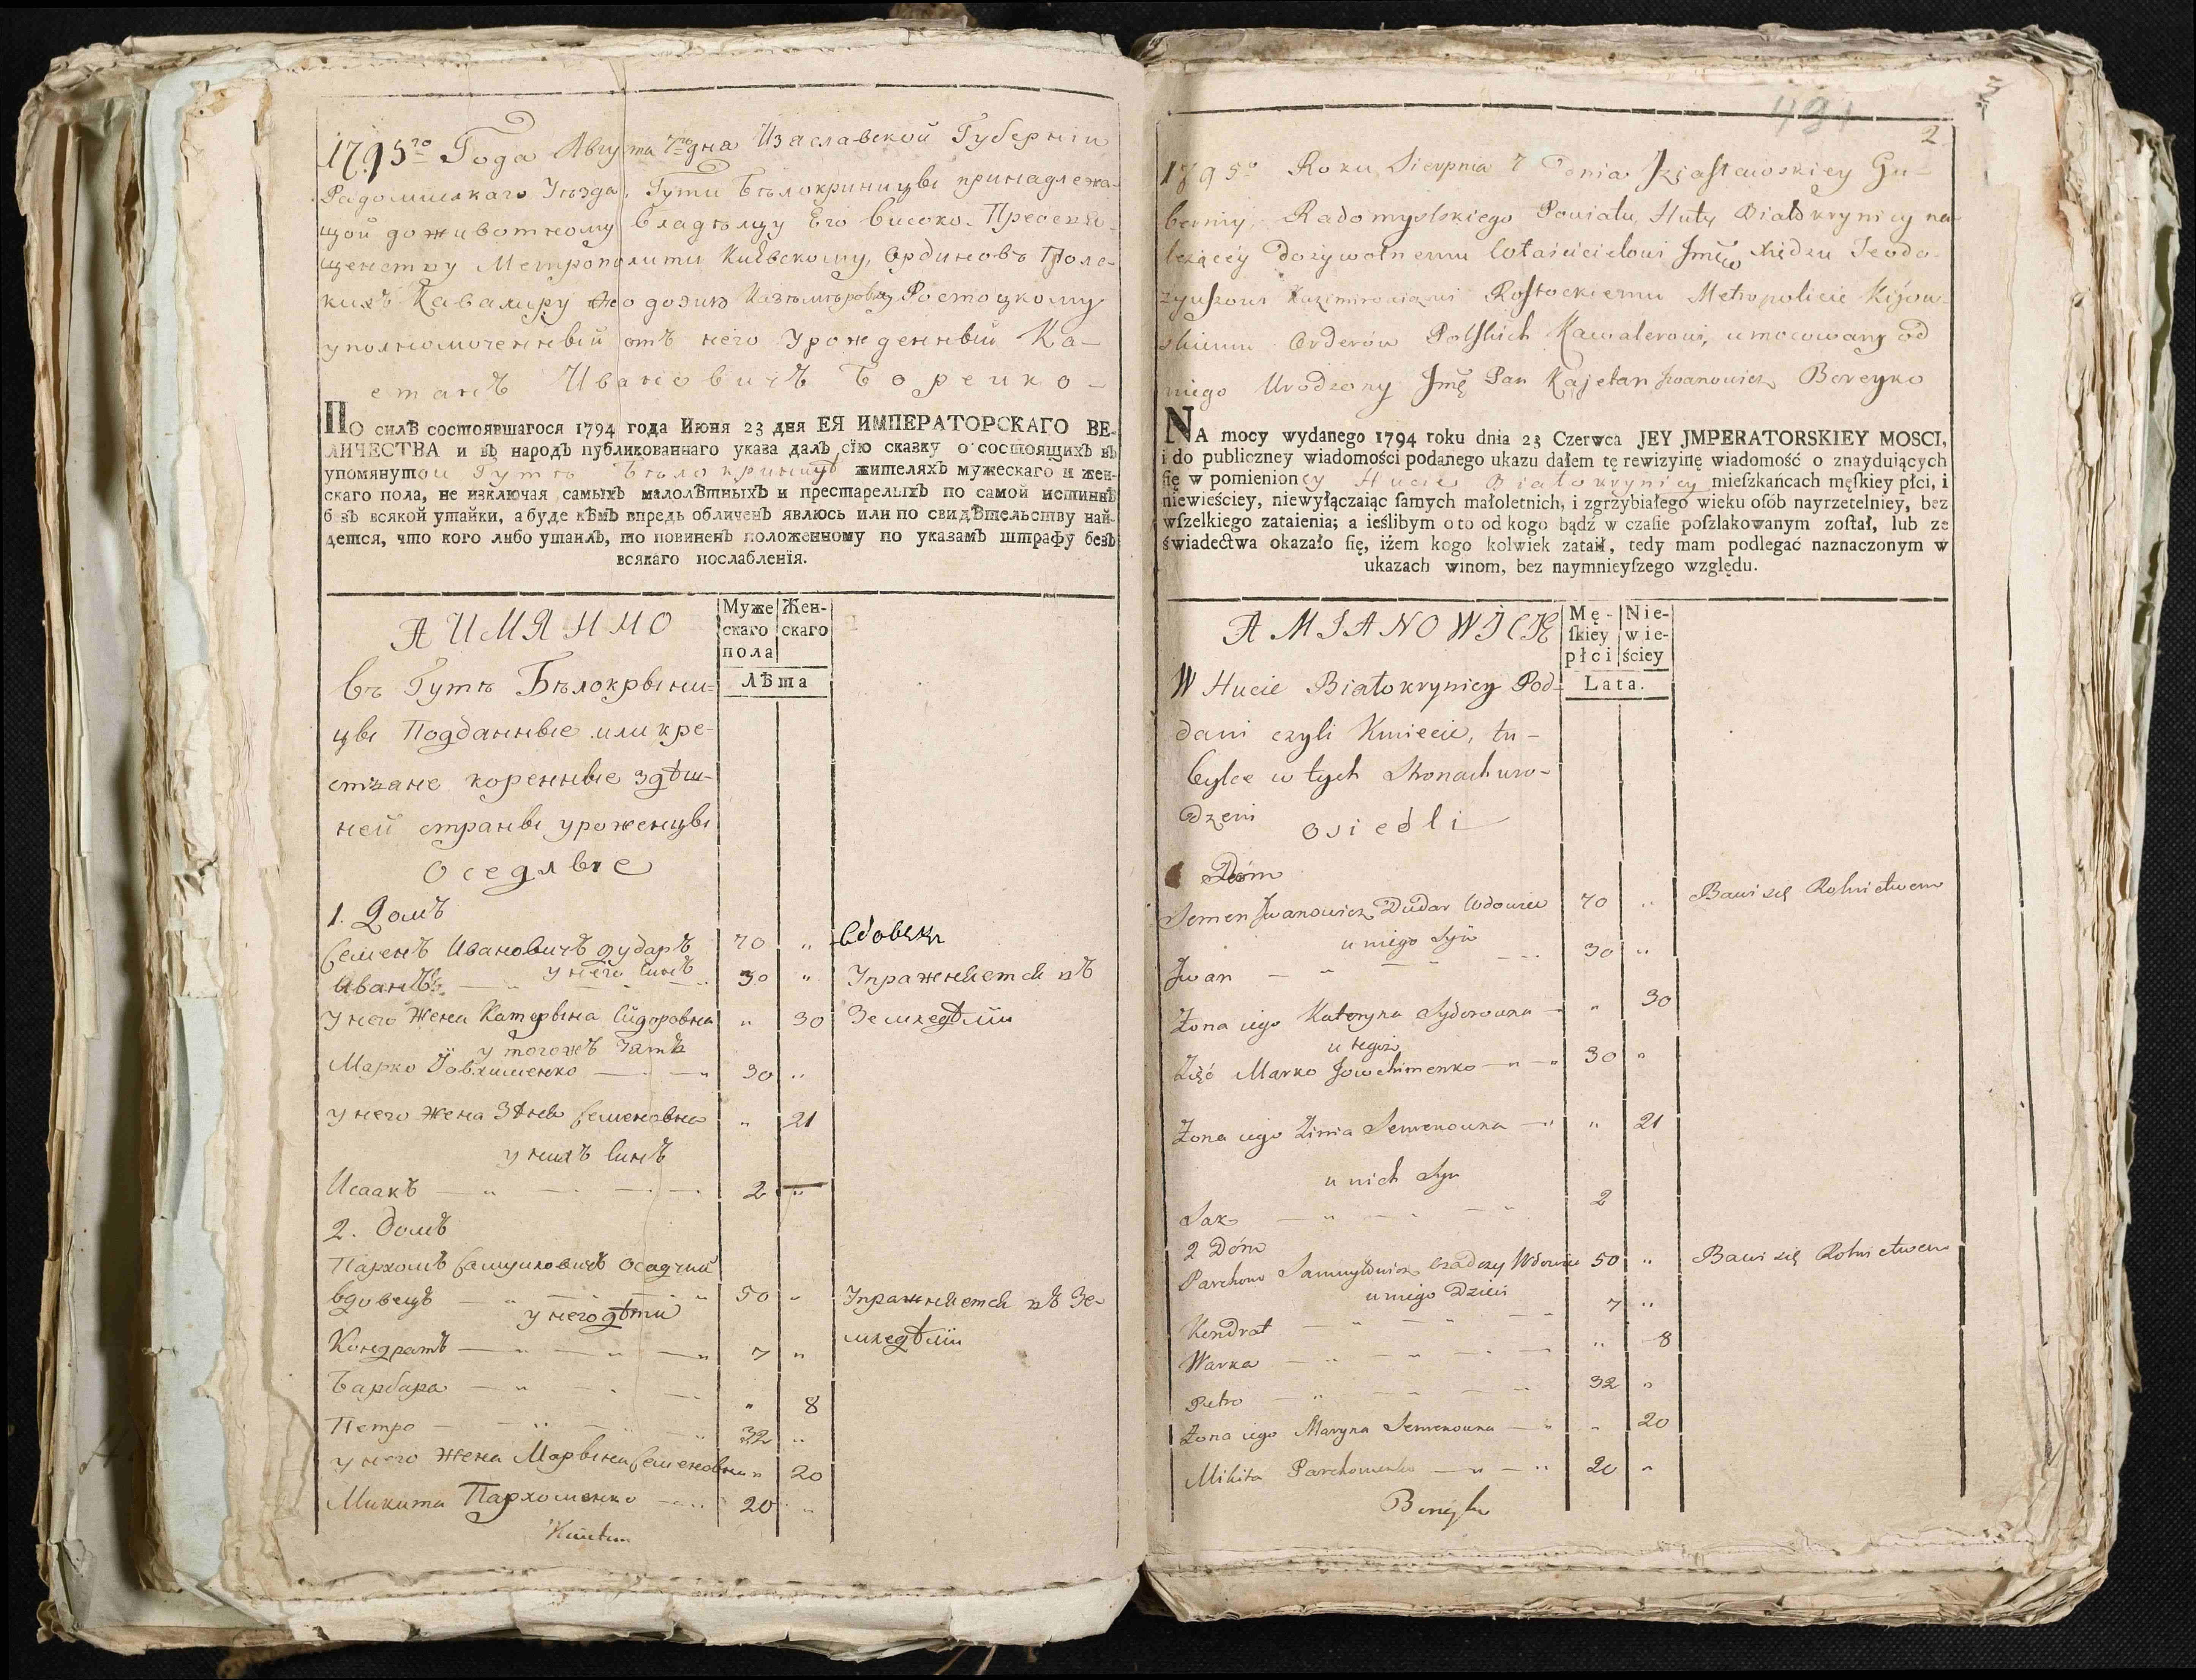 1795го Года Августа 7го дня Изаславской Губернїи
Радомишлскаго Уѣзда, Гути Бѣлокриницы принадлежа-
щой доживотному Владѣлцу Его Високо-Преосвя-
щенству Митрополити Киевскому, Ординовъ Пол-
кихъ Кавалиру Феодозию Казѣмѣровичу Ростоцкому
уполномоченный отъ него Урожденный Ка-
етанъ Ивановичъ Борейко-
ПО силѣ состоявшагося 1794 года Июня 23 дня ЕЯ ИМПЕРАТОРСКАГО ВЕ-
ЛИЧЕСТВА и въ народъ публикованнаго указа далъ сїю сказку о состоящихъ въ
упомянутой Гутѣ Бѣлокриницѣ жителяхъ мужескаго и жен-
скаго пола, не изключая самыхъ малолѣтныхъ и престарелыхъ по самой истиннѣ
безъ всякой утайки, а буде кѣмъ впредь обличенъ явлюсь или по свидѣтельству най-
дется, что кого либо утаилъ, то повиненъ положенному по указамъ штрафу безъ
всякаго послабленїя.
А ИМЯННО
Муже- Жен-
скаго скаго
пола
Лѣта
Въ Гутѣ Бѣлокрыни-
цы Подданные или кре-
стъяне коренные здѣш-
ней страны уроженцы
Оседлые
1. Домъ
Семенъ Ивановичъ Дударъ 70 " Вдовецъ
у него синъ
Иванъ 30 " Упражняется въ
У него Жена Катерына Сидоровна " 30 Земледѣлїи
у тогожъ зать
Марко Йовхименко 30 "
у него жена Зѣня Семеновна " 21
у нихъ синъ
Исаакъ 2 "
2. Домъ
Пархомъ Самуиловичъ Осадчий
вдовецъ 50 " Упражняется въ Зе-
у него дѣти
мледѣлїи
Кондратъ 7 "
Барбара " 8
Петро 32 "
у него жена Марына Семеновна " 20
Микита Пархоменко 20 "
491
3
2
1795о Roku Sierpnia 7 Dnia Jzjasławskiey Gu-
bernij, Radomyslskiego Powiatu, Huty Białokrynicy na-
leżącéy Dożywotnemu Właścicielowi Jmc Xiędzu Teodo-
zyuszowi Kazimirowiczowi Rostockiemu Metropolicie Kijow-
skiemu Orderów Polskich Kawalerowi, umocowany od
niego Urodzony Jmć Pan Kajetan Jwanowicz Boreyko
NA mocy wydanego 1794 roku dnia 23 Czerwca JEY JMPERATORSKIEY MOSCI,
i do publiczney wiadomości podanego ukazu dałem tę rewizyinę wiadomość o znayduiących
ſię w pomienioncy Hucie Białokrynicy mieſzkańcach męſkiey płci, i
niewieściey, niewyłączaiąc ſamych małoletnich, i zgrzybiałego wieku oſób nayrzetelniey, bez
wſzelkiego zataienia; a ieślibym o to od kogo bądź w czaſie poſzlakowanym zoſtał, lub ze
świadectwa okazało ſię, iżem kogo kolwiek zataił, tedy mam podlegać naznaczonym w
ukazach winom, bez naymnieyſzego względu.
A MIANOWICIE
Mę- Nie-
ſkiey wie-
płci ściey
Lata.
W Hucie Białokrynicy Pod-
dani czyli Kmiecie, tu-
bylce w tych Stronach uro-
dzeni osiedli
1 Dóm
Semen Jwanowicz Dudar Wdowiec 70 " Bawi się Rolnictwem
u niego Syn
Jwan 30 "
Żona iego Kateryna Sydorowna " 30
u tegoż
Zięć Marko Jowchimenko 30 "
Żona iego Zinia Semenowna " 21
u nich Syn
Sak 2
2 Dóm
Parchom Samuyłowicz Osadczy Wdowiec 50 " Bawi się Rolnictwem
u niego Dzieci
Kondrat 7 "
Warka " 8
Petro 32 "
Żona iego Maryna Semenowna " 20
Mikita Parchomenko 20 "
Boreyko